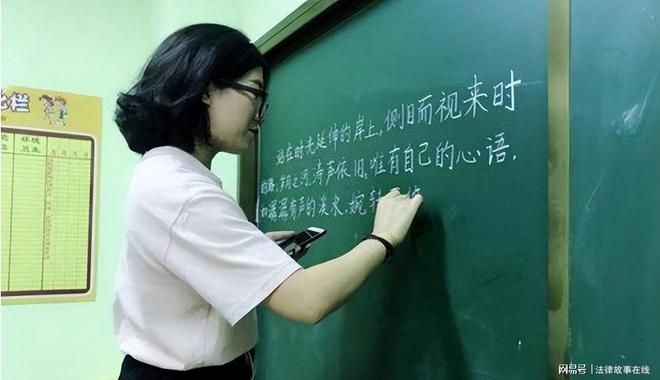 栏
站在时光延伸的岸上,侧目而视来时
的路,岁月之河,涛声依旧。唯有自己的心语,
如潺潺有声的溪水,婉
网易号 | 法律故事在线